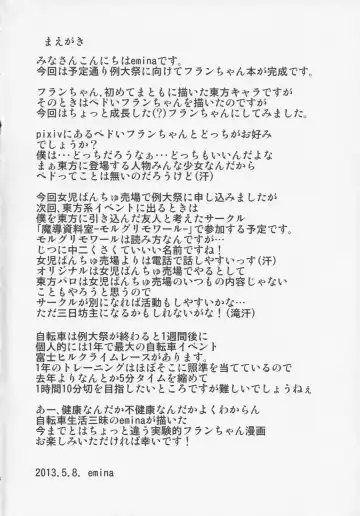 まえがき
みなさんこんにちはeminaです。
今回は予定通り例大祭に向けてフランちゃん本が完成です。
フランちゃん、初めてまともに描いた東方キャラですが
そのときはヘドいフランちゃんを描いたのですが
今回はちょっと成長した(?)フランちゃんにしてみました。
pixivにあるヘドいフランちゃんとどっちがお好み
でしょうか?
僕は…どっちだろうなぁ…どっちもいいんだよな
まぁ東方に登場する人物みんな少女なんだから
ヘドってことは無いのだろうけど(汗)
今回女児ぱんちゅ売場で例大祭に申し込みましたが
次回、東方系イベントに出るときは
僕を東方に引き込んだ友人と考えたサークル
「魔導資料室-モルグリモワール-」で参加する予定です。
モルグリモワールは読み方なんですが…
じつに中二くさくていい名前ですね!
女児ぱんちゅ売場よりは電話で話しやすいっす(汗)
オリジナルは女児ぱんちゅ売場でやるとして
東方パロは女児ぱんちゅ売場のいつもの内容じゃない
こともやろうと思うので
サークルが別になれば活動もしやすいかな…
ただ三日坊主になるかもしれないがな!(滝汗)
自転車は例大祭が終わると1週間後に
個人的には1年で最大の自転車イベント
富士ヒルクライムレースがあります。
1年のトレーニングはほぼそこに照準を当てているので
去年よりなんとか5分タイムを縮めて
1時間10分切を目指したいところですが難しいでしょうねぇ
あー、健康なんだか不健康なんだかよくわからん
自転車生活三昧のeminaが描いた
今までとはちょっと違う実験的フランちゃん漫画
お楽しみいただければ幸いです!
2013.5.8. emina